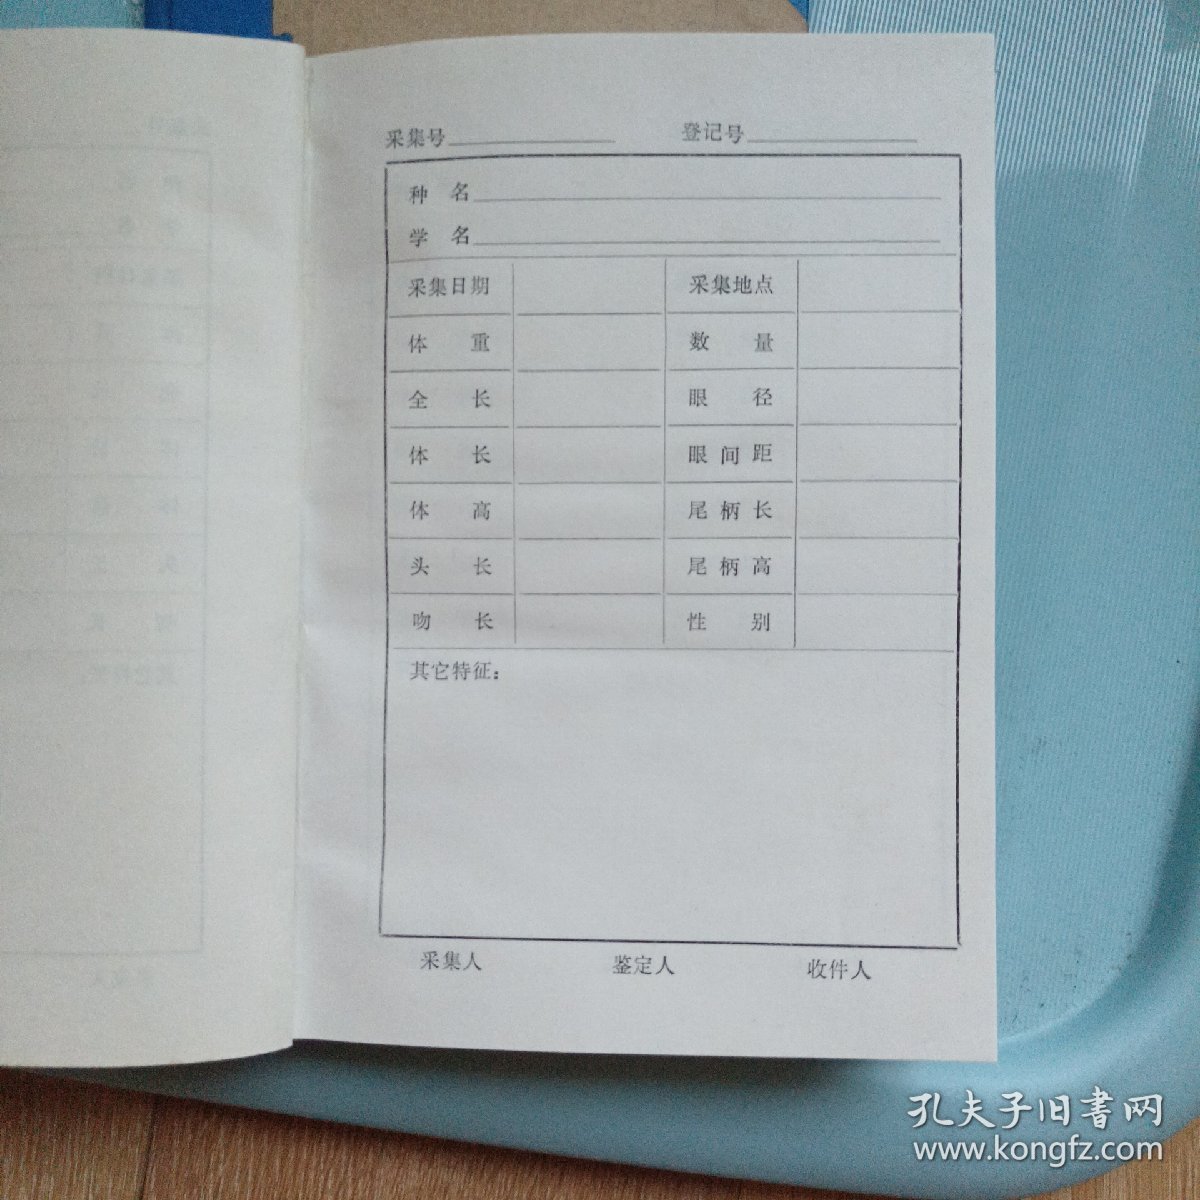 采集号 登记号
种 名
学 名
采集日期 采集地点
体 重 数 量
全 长 眼 径
体 长 眼 间 距
体 高 尾 柄 长
头 长 尾 柄 高
吻 长 性 别
其它特征：
采集人 鉴定人 收件人
孔夫子旧書网
www.kongfz.com